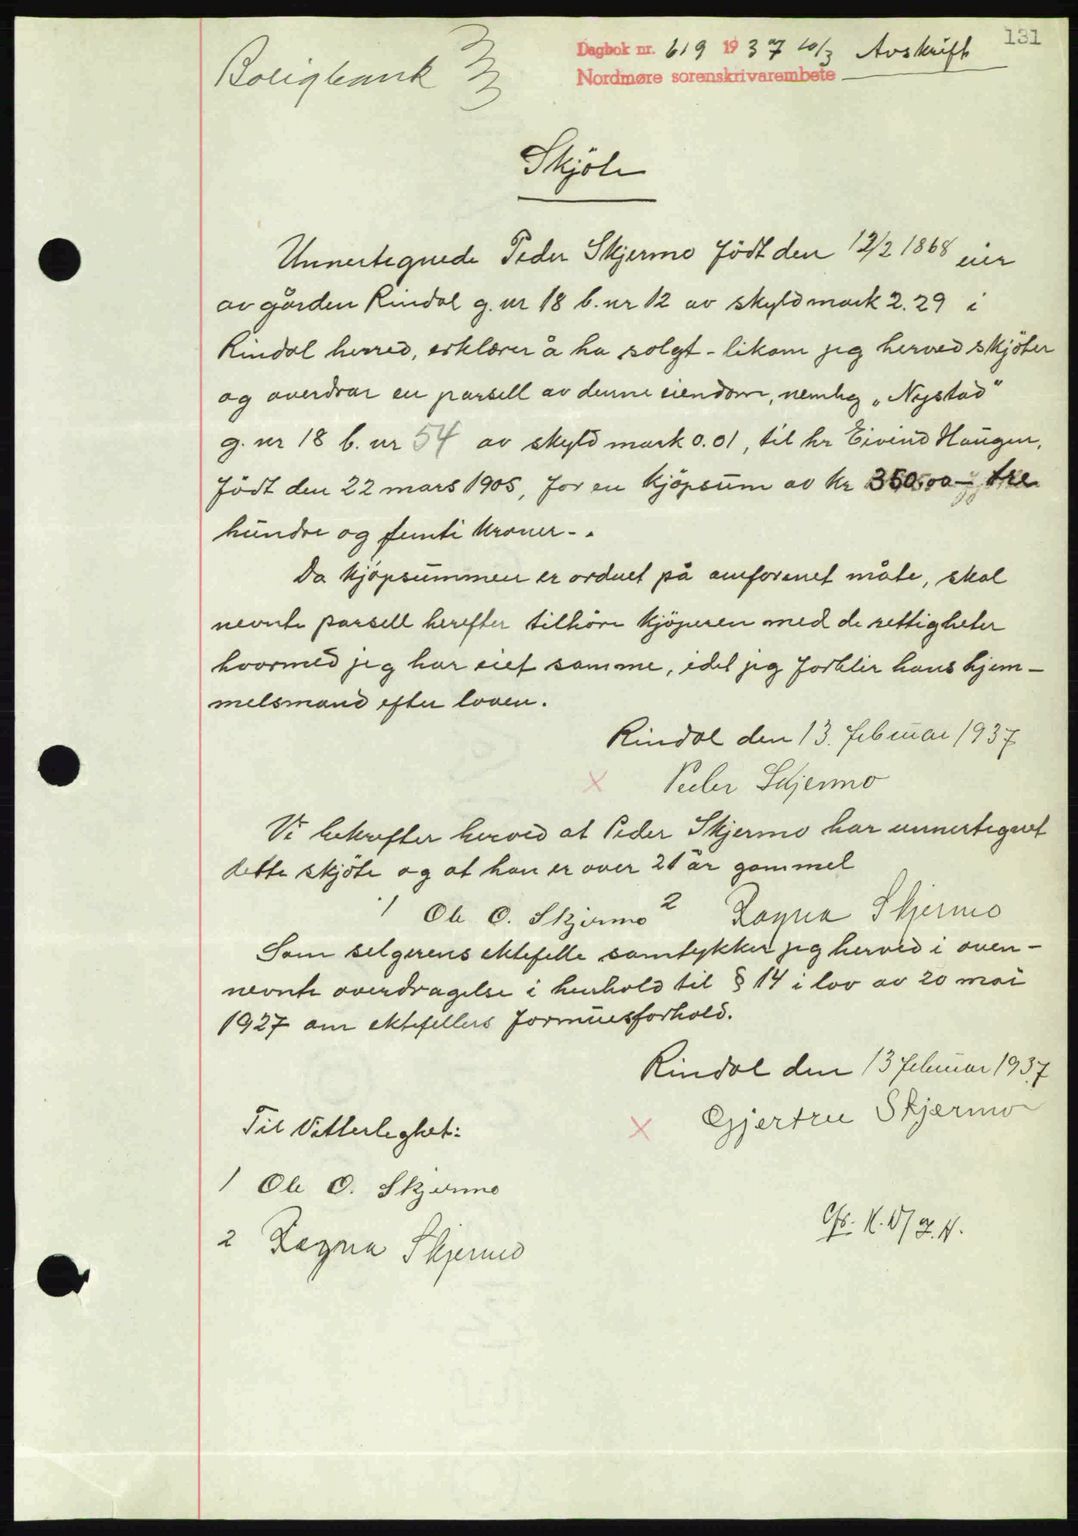 131
Boligbank
Dagbok nr. 619 1937 10/3 Avskrift
Nordmøre sorenskrivarembete
Skjöte
Unnertegnede Peder Skjermo födt den 12/2 1868 eier
av gården Rindal g. nr 18 b. nr 12 av skyld mark 2.29 i
Rindal herred, erklærer å ha solgt - likom jeg herved skjöter
og overdrar en parsell av denne eiendom, nemlig „Nystad"
g. nr 18 b. nr 54 av skyld mark 0.01, til hr Eivind Haugen,
födt den 22 mars 1905, for en kjöpsum av kr 350.00 - tre
hundre og femti kroner - .
Da kjöpsummen er ordnet på omforenet måte, skal
nevnte parsell herefter tilhöre kjöperen med de rettigheter
hvormed jeg har eiet samme, idet jeg forblir hans hjem-
melsmand efter loven.
Rindal den 13. februar 1937
x Peder Skjermo
Vi bekrefter herved at Peder Skjermo har unnertegnet
dette skjöte og at han er over 21 år gammel
1 Ole O. Skjermo 2 Ragna Skjermo
Som selgerens ektefelle samtykker jeg herved i oven-
nevnte overdragelse i henhold til § 14 i lov av 20 mai
1927 om ektefellers formuesforhold.
Rindal den 13 februar 1937
x Gjertru Skjermo
Til Vitterlighet:
1 Ole O. Skjermo
2 Ragna Skjermo